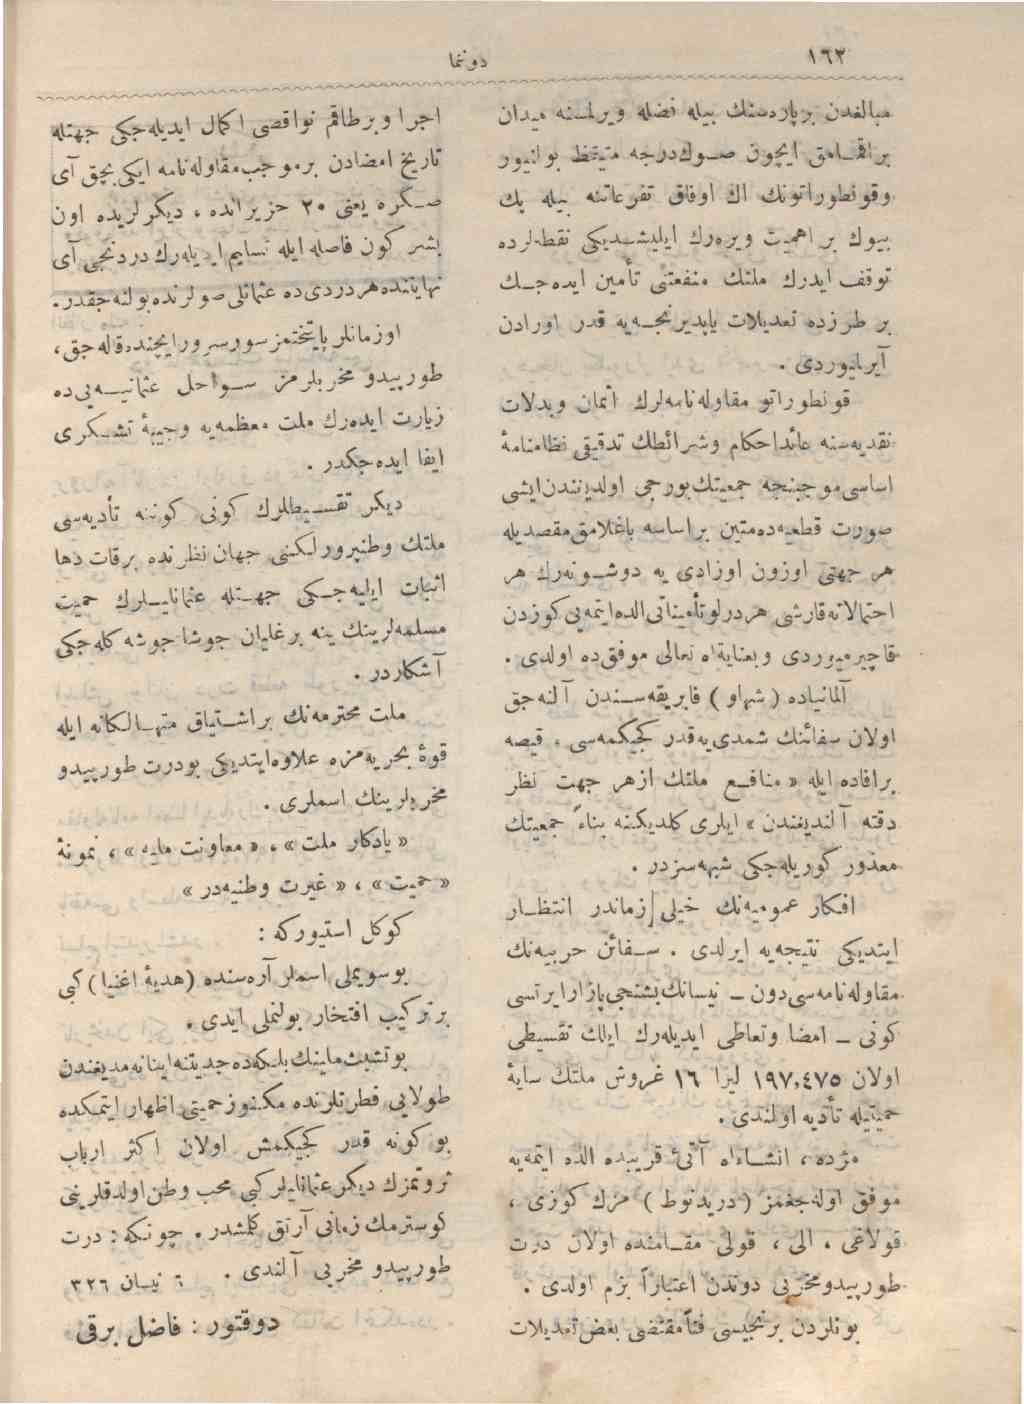 ١٦٢
دوننما
مبالغدن برپارەسنك بیله فضله ویرلمسنه میدان
براقمامق ایچون صوك‌درجه متیقظ بولنیور
وقونطوراتونك اك اوفاق تفرعاتنه بیله پك
بیوك بر اهمیت ویرەرك ایلیشدیكی نقطه‌لرده
توقف ایدرك ملتك منفعتنی تأمین ایده‌جك
بر طرزده تعدیلات یاپدیرنجه‌یه قدر اورادن
آیرلمیوردی .
قونطوراتو مقاوله‌نامه‌لرك اثمان وبدلات
نقدیه‌سنه عائداحكام وشرائطك تدقیقی نظامنامهٔ
اساسی موجبنجه جمعیتك‌بورجی اولدیغندن‌ایشی
صورت قطعیه‌ده‌متین براساسه باغلامق‌مقصدیله
هر جهتی اوزون اوزادی یه دوشونه‌رك هر
احتمالاته‌قارشی هردرلوتأمیناتی‌الده‌ایتمه‌یی‌كوزدن
قاچیرمیوردی وبعنایةالله تعالی موفق‌ده اولدی .
آلمانیاده ( شیهاو ) فابریقه‌سندن آلنه‌جق
اولان سفائنك شمدی‌یه‌قدر كجیكمه‌سی ، قیصه
برافاده ایله « منافع ملتك ازهر جهت نظر
دقته آلندیغندن » ایلری كلدیكنه بناءً جمعیتك
معذور كوریله‌جكی شبهه‌سزدر .
افكار عمومیه‌نك خیلی زماندر انتظار
ایتدیكی نتیجه‌یه ایرلدی . سفائن حربیه‌نك
مقاوله‌نامه‌سی دون ـ نیسانك‌بشنجی‌پازارایرتسی
كونی ـ امضا وتعاطی ایدیله‌رك ایلك تقسیطی
اولان ١٩٧,٤٧٥ لیرا ١٦ غروش ملتك سایهٔ
حمیتیله تأدیه اولندی .
مژده ، انشاءالله آتیٔ قریبده الده ایتمه‌یه
موفق اوله‌جغمز ( دریدنوط ) مزك كوزی ،
قولاغی ، الی ، قولی مقامنده اولان درت
طورپیدومخربی دوندن اعتباراً بزم اولدی .
بونلردن برنجیسی فناًمقتضی بعض‌تعدیلات
اجرا وبرطاقم نواقصی اكمال ایدیله‌جكی جهتله
تاریخ امضادن برموجب‌مقاوله‌نامه ایكی‌بچق آی
صكره یعنی ٢٠ حزیرانده ، دیكرلریده اون
بشر كون فاصله ایله تسلیم ایدیله‌رك دردنجی آی
نهایتنده‌هردردی‌ده عثمانلی‌صولرنده‌بولنه‌جقدر.
اوزمانلر پایتختمزسورسرورایچنده‌قاله‌جق،
طورپیدو مخربلرمز سواحل عثمانیه‌یی‌ده
زیارت ایده‌رك ملت معظمه‌یه وجیبهٔ تشكری
ایفا ایده‌جكدر .
دیكر تقسیطلرك كونی كوننه تأدیه‌سی
ملتك وطنپرورلكنی جهان نظرنده برقات دها
اثبات ایلیه‌جكی جهتله عثمانلیلرك حمیت
مسلمه‌لرینك ینه برغلیان جوشاجوشه كله‌جكی
آشكاردر .
ملت محترمه‌نك براشتیاق متهالكانه ایله
قوهٔ بحریه‌مزه علاوه‌ایتدیكی بودرت طورپیدو
مخربلرینك اسملری .
« یادكار ملت » ، « معاونت ملیه » ، نمونهٔ
« حمیت » ، « غیرت وطنیه‌در »
كوكل استیوركه :
بوسویملی اسملر آره‌سنده (هدیهٔ اغنیا) كبی
برتركیب افتخار بولنملی ایدی .
بوتشبث‌ملینك بلكه‌ده جدیتنه‌اینانه‌مدیغندن
طولایی فطرتلرنده مكنوزحمیتی اظهار ایتمكده
بو كونه قدر كجیكمش اولان اكثر ارباب
ثروتمزك دیكرعثمانلیلركبی محب وطن‌اولدقلرینی
كوسترمك زمانی آرتق كلمشدر. چونكه: درت
طورپیدو مخربی آلندی . ٦ نیسان ٣٢٦
دوقتور : فاضل برقی